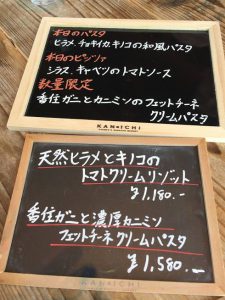 本日のパスタ
ヒラメ、チョキイカ、キノコの和風パスタ
本日のピッツァ
シラス、キャベツのトマトソース
数量限定
香住ガニとカニミソのフェットチーネ
クリームパスタ
KANOICHI
天然ヒラメとキノコの
トマトクリームリゾット
¥1,180.-
香住ガニと濃厚カニミソ
フェットチーネクリームパスタ
¥1,580.-